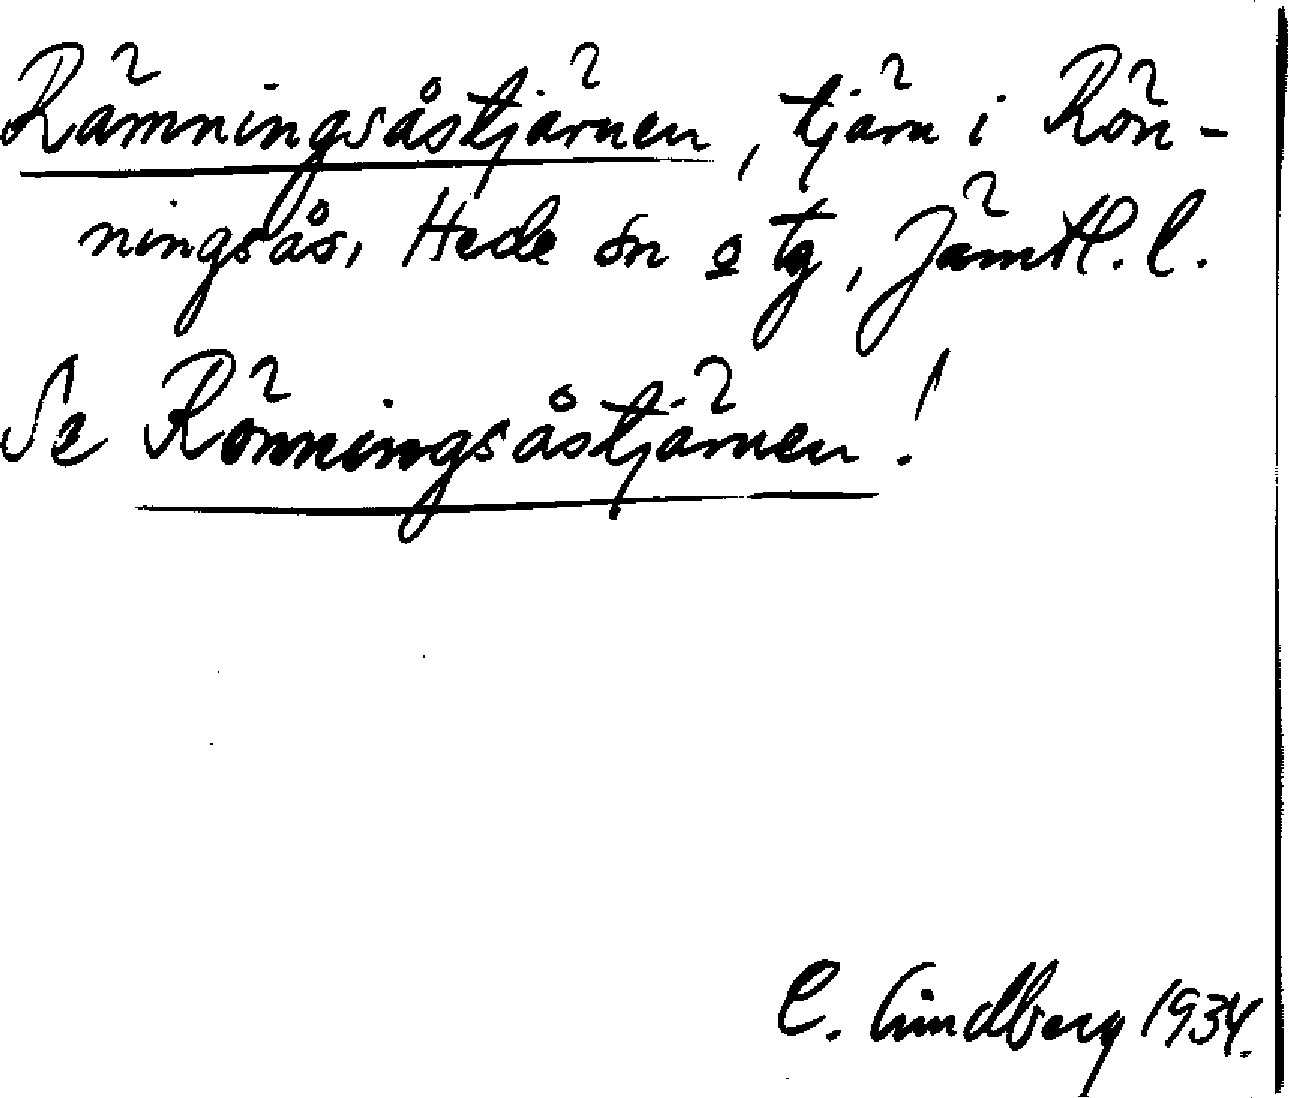 Rämningsåstjärnen, tjärn i Rön-
ningsås, Hede sn o tg, Jämtl. l.
Se Rönningsåstjärnen!
C. Lindberg 1934.